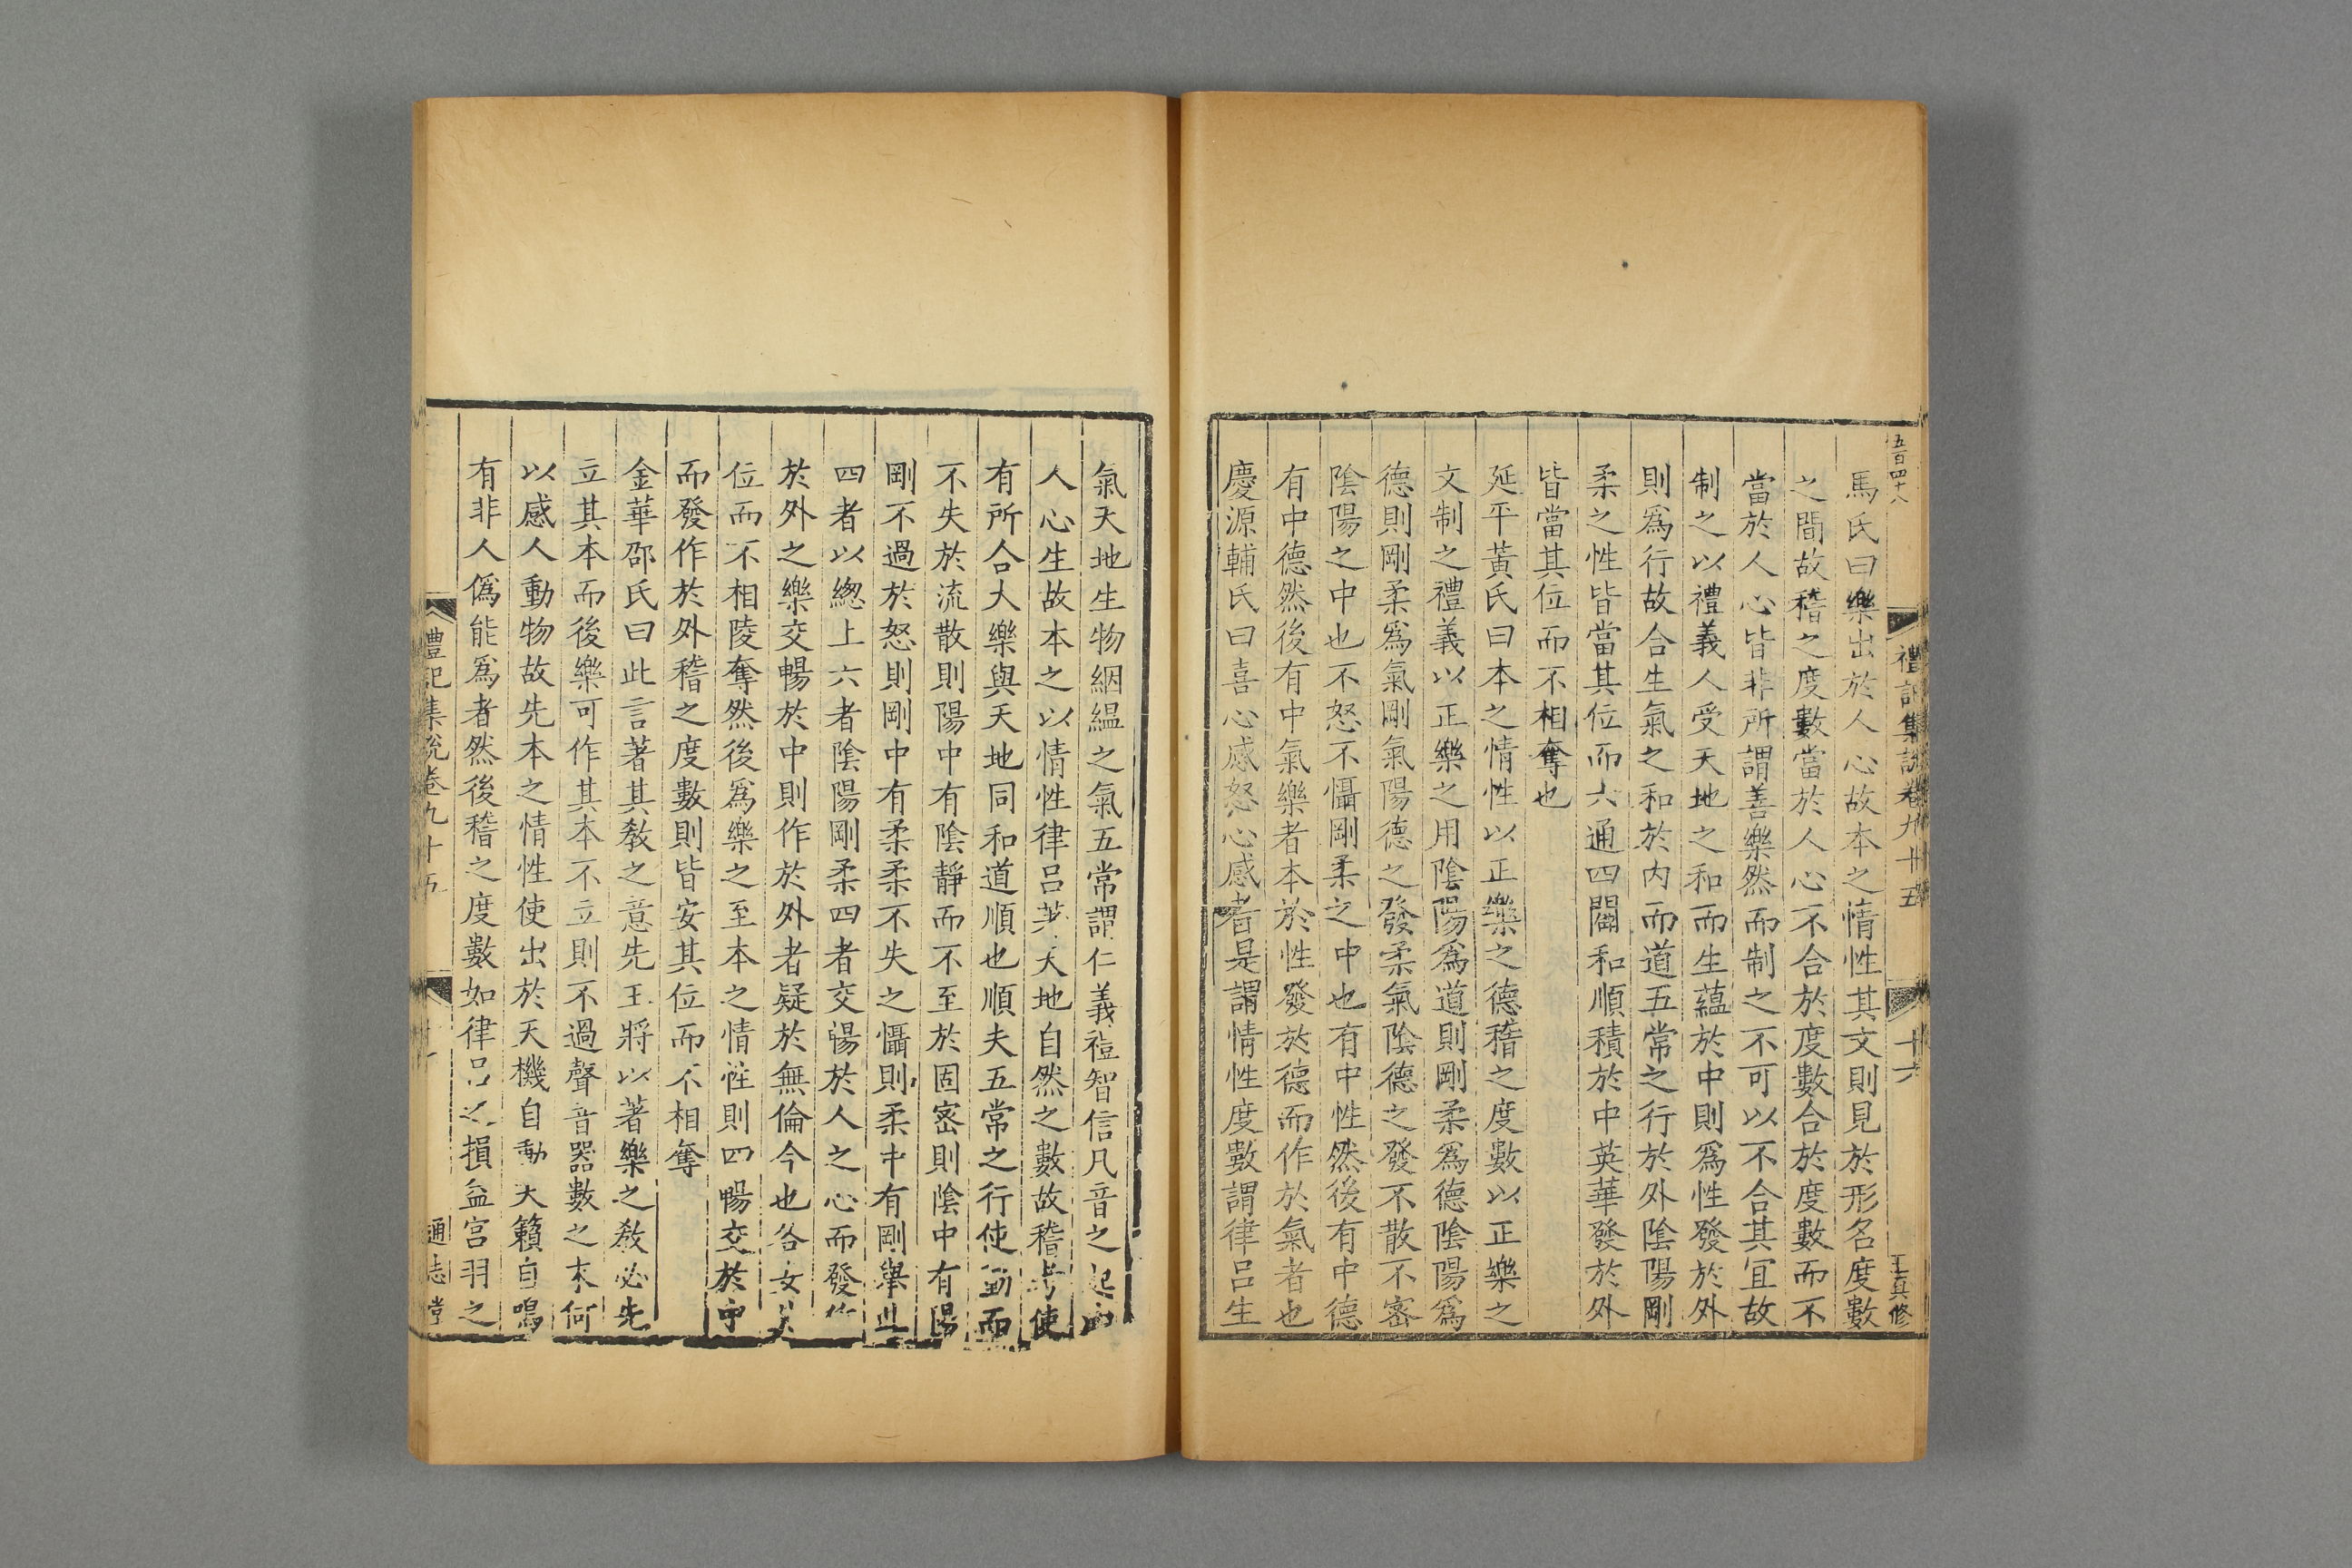 五百四十八 禮記集說卷九十五 十六 王真修
馬氏曰樂出於人心故本之情性其文則見於形名度數
之間故稽之度數當於人心不合於度數合於度數而不
當於人心皆非所謂善樂然而制之不可以不合其宜故
制之以禮義人受天地之和而生蘊於中則爲性發於外
則爲行故合生氣之和於内而道五常之行於外陰陽剛
柔之性皆當其位而六通四闢和順積於中英華發於外
皆當其位而不相奪也
延平黃氏曰本之情性以正樂之德稽之度數以正樂之
文制之禮義以正樂之用陰陽爲道則剛柔爲德陰陽爲
德則剛柔爲氣剛氣陽德之發柔氣陰德之發不散不密
陰陽之中也不怒不懾剛柔之中也有中性然後有中德
有中德然後有中氣樂者本於性發於德而作於氣者也
慶源輔氏曰喜心感怒心感者是謂情性度數謂律呂生
氣天地生物絪縕之氣五常謂仁義禮智信凡音之起由
人心生故本之以情性律呂天地自然之數故稽考使
有所合大樂與天地同和道順也順夫五常之行使動而
不失於流散則陽中有陰靜而不至於固密則陰中有陽
剛不過於怒則剛中有柔柔不失之懾則柔中有剛舉此
四者以緫上六者陰陽剛柔四者交暢於人之心而發作
於外之樂交暢於中則作於外者疑於無倫今也各安其
位而不相陵奪然後爲樂之至本之情性則四暢交於中
而發作於外稽之度數則皆安其位而不相奪
金華邵氏曰此言著其敎之意先王將以著樂之敎必先
立其本而後樂可作其本不立則不過聲音器數之末何
以感人動物故先本之情性使出於天機自動天籟自鳴
有非人僞能爲者然後稽之度數如律呂之損益宮羽之
禮記集說卷九十五 通志堂